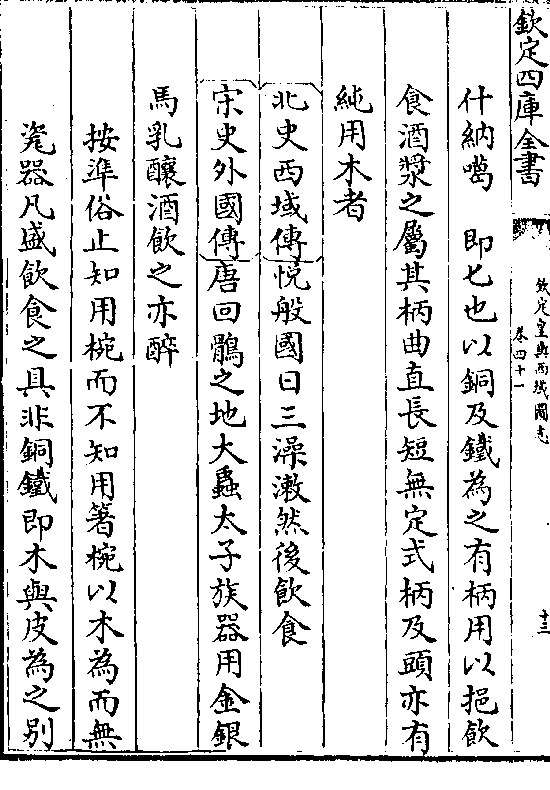 欽定四庫全書
欽定皇輿西域圖志
卷四十一
十三
什納噶 即匕也以銅及鐵為之有柄用以挹飲
食酒漿之屬其柄曲直長短無定式柄及頭亦有
純用木者
北史西域傳悅般國日三澡漱然後飲食
宋史外國傳唐回鶻之地大蟲太子族器用金銀
馬乳釀酒飲之亦醉
按準俗止知用椀而不知用箸椀以木為而無
瓷器凡盛飲食之具非銅鐵即木與皮為之別